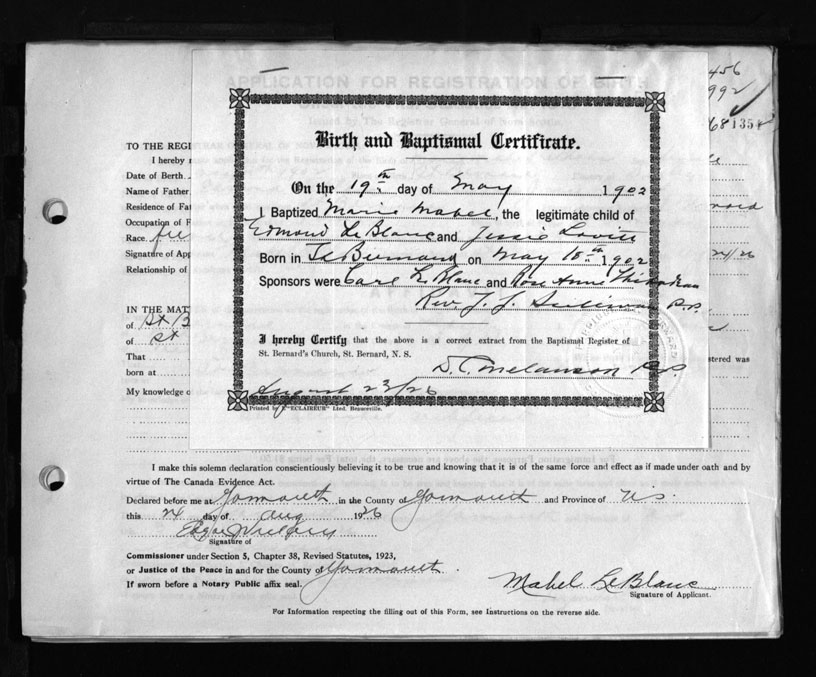 APPLICATION FOR REGISTRATION OF BIRTH
456
992
681354
Birth and Baptismal Certificate.
TO THE REGI
I hereby
Date of Birth
Name of Father
Residence of Fat
Occupation of F
Race
Signature of App
24/26
Relationship of
On the 19th day of May 1902
I Baptized Marie Mabel, the legitimate child of
Edmond Le Blanc and Jessie
Born in St Bernard on May 18th 1902
Sponsors were Carl Le Blanc and Rose Anne Thibodeau
Rev. J. J. Sullivan P.P.
I hereby Certify that the above is a correct extract from the Baptismal Register of
St. Bernard's Church, St. Bernard, N. S.
D. C. Melanson P.P.
August 23/26
Printed by "L'ECLAIREUR" Lted. Beauceville.
IN THE MAT
of St B
of St
That
stered was
born at
My knowledge o
I make this solemn declaration conscientiously believing it to be true and knowing that it is of the same force and effect as if made under oath and by
virtue of The Canada Evidence Act.
Declared before me at Yarmouth in the County of Yarmouth and Province of N.S.
this 24 day of Aug 1926
Signature of
Commissioner under Section 5, Chapter 38, Revised Statutes, 1923,
or Justice of the Peace in and for the County of Yarmouth.
If sworn before a Notary Public affix seal.
Mabel Le Blanc
Signature of Applicant.
For Information respecting the filling out of this Form, see Instructions on the reverse side.